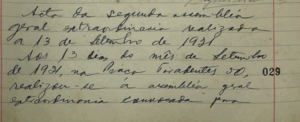 Acta da segunda assembléa
geral extraordinaria realizada
a 13 de Setembro de 1921.
Aos 13 dias do mês de Setembro
de 1921, na Praça Tiradentes 50,
029
realizou-se a assembléa geral
extraordinaria convocada para